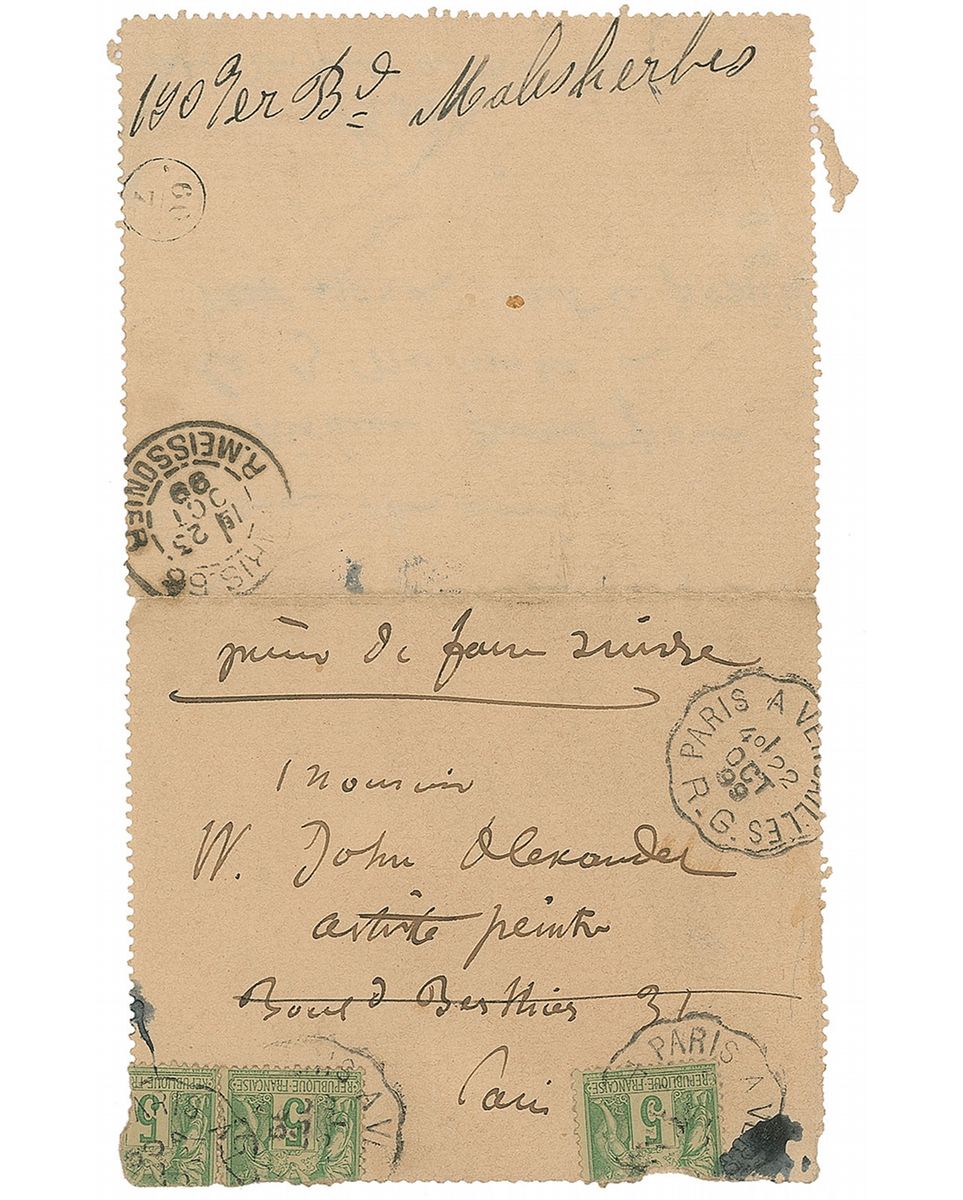 Bd Malesherbes
R. MEISSONIER
PARIS
23
OCT
99
prière de faire suivre
PARIS A VERSAILLES R.G.
22
OCT
99
Monsieur
W. John Alexander
artiste peintre
Bould Berthier 31
Paris
PARIS A VE
REPUBLIQUE FRANÇAISE
5
REPUBLIQUE FRANÇAISE
5
REPUBLIQUE FRANÇAISE
5